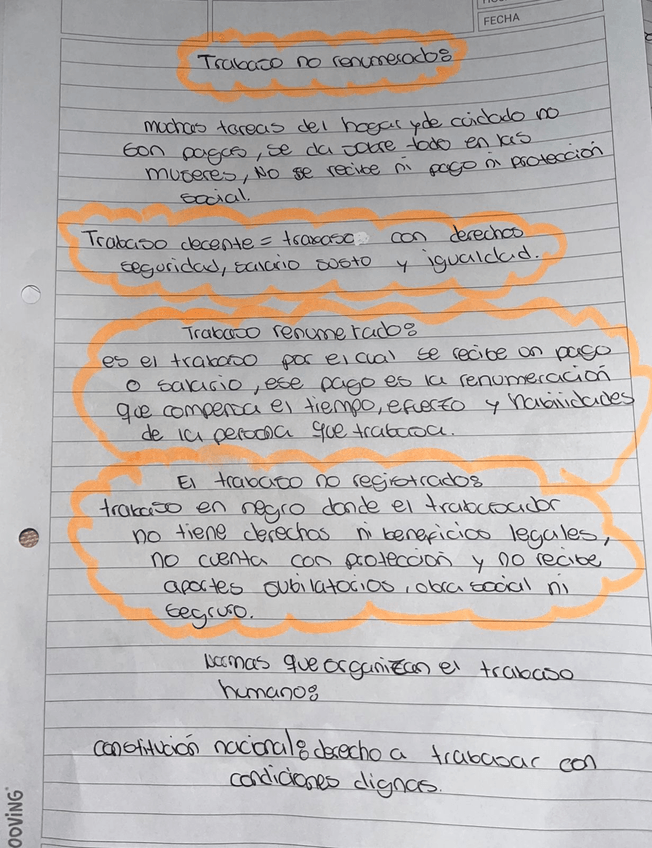 FECHA
Trabajo no renumerado:
muchas tareas del hogar y de cuidado no
son pagas, se da sobre todo en las
mujeres, No se recibe ni pago ni protección
social.
Trabajo decente = trabajo con derechos
seguridad, salario justo y igualdad.
Trabajo renumerado:
es el trabajo por el cual se recibe un pago
o salario, ese pago es la renumeración
que compensa el tiempo, efuerzo y habilidades
de la persona que trabaja.
El trabajo no registrado:
trabajo en negro donde el trabajador
no tiene derechos ni beneficios legales,
no cuenta con protección y no recibe
aportes jubilatorios, obra social ni
segruro.
Normas que organizan el trabajo
humano:
constitución nacional: derecho a trabajar con
condiciones dignas.
OOVING